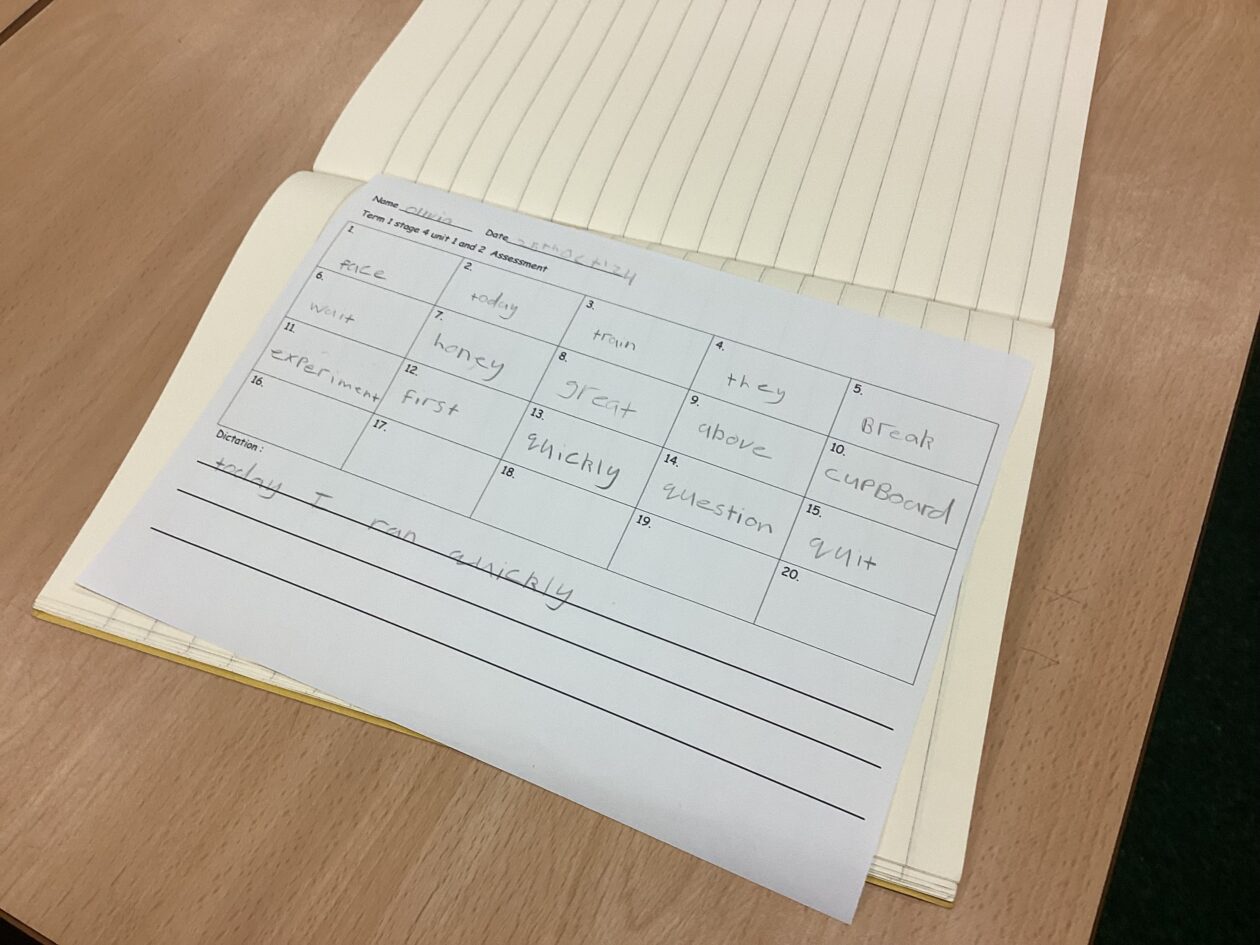 Name Olivia Date
Term 1 stage 4 unit 1 and 2 Assessment
1. face 2. today 3. train 4. they 5. Break
6. wait 7. honey 8. great 9. above 10. cupBoard
11. experiment 12. first 13. quickly 14. question 15. quit
16. 17. 18. 19. 20.
Dictation :
today I ran quickly